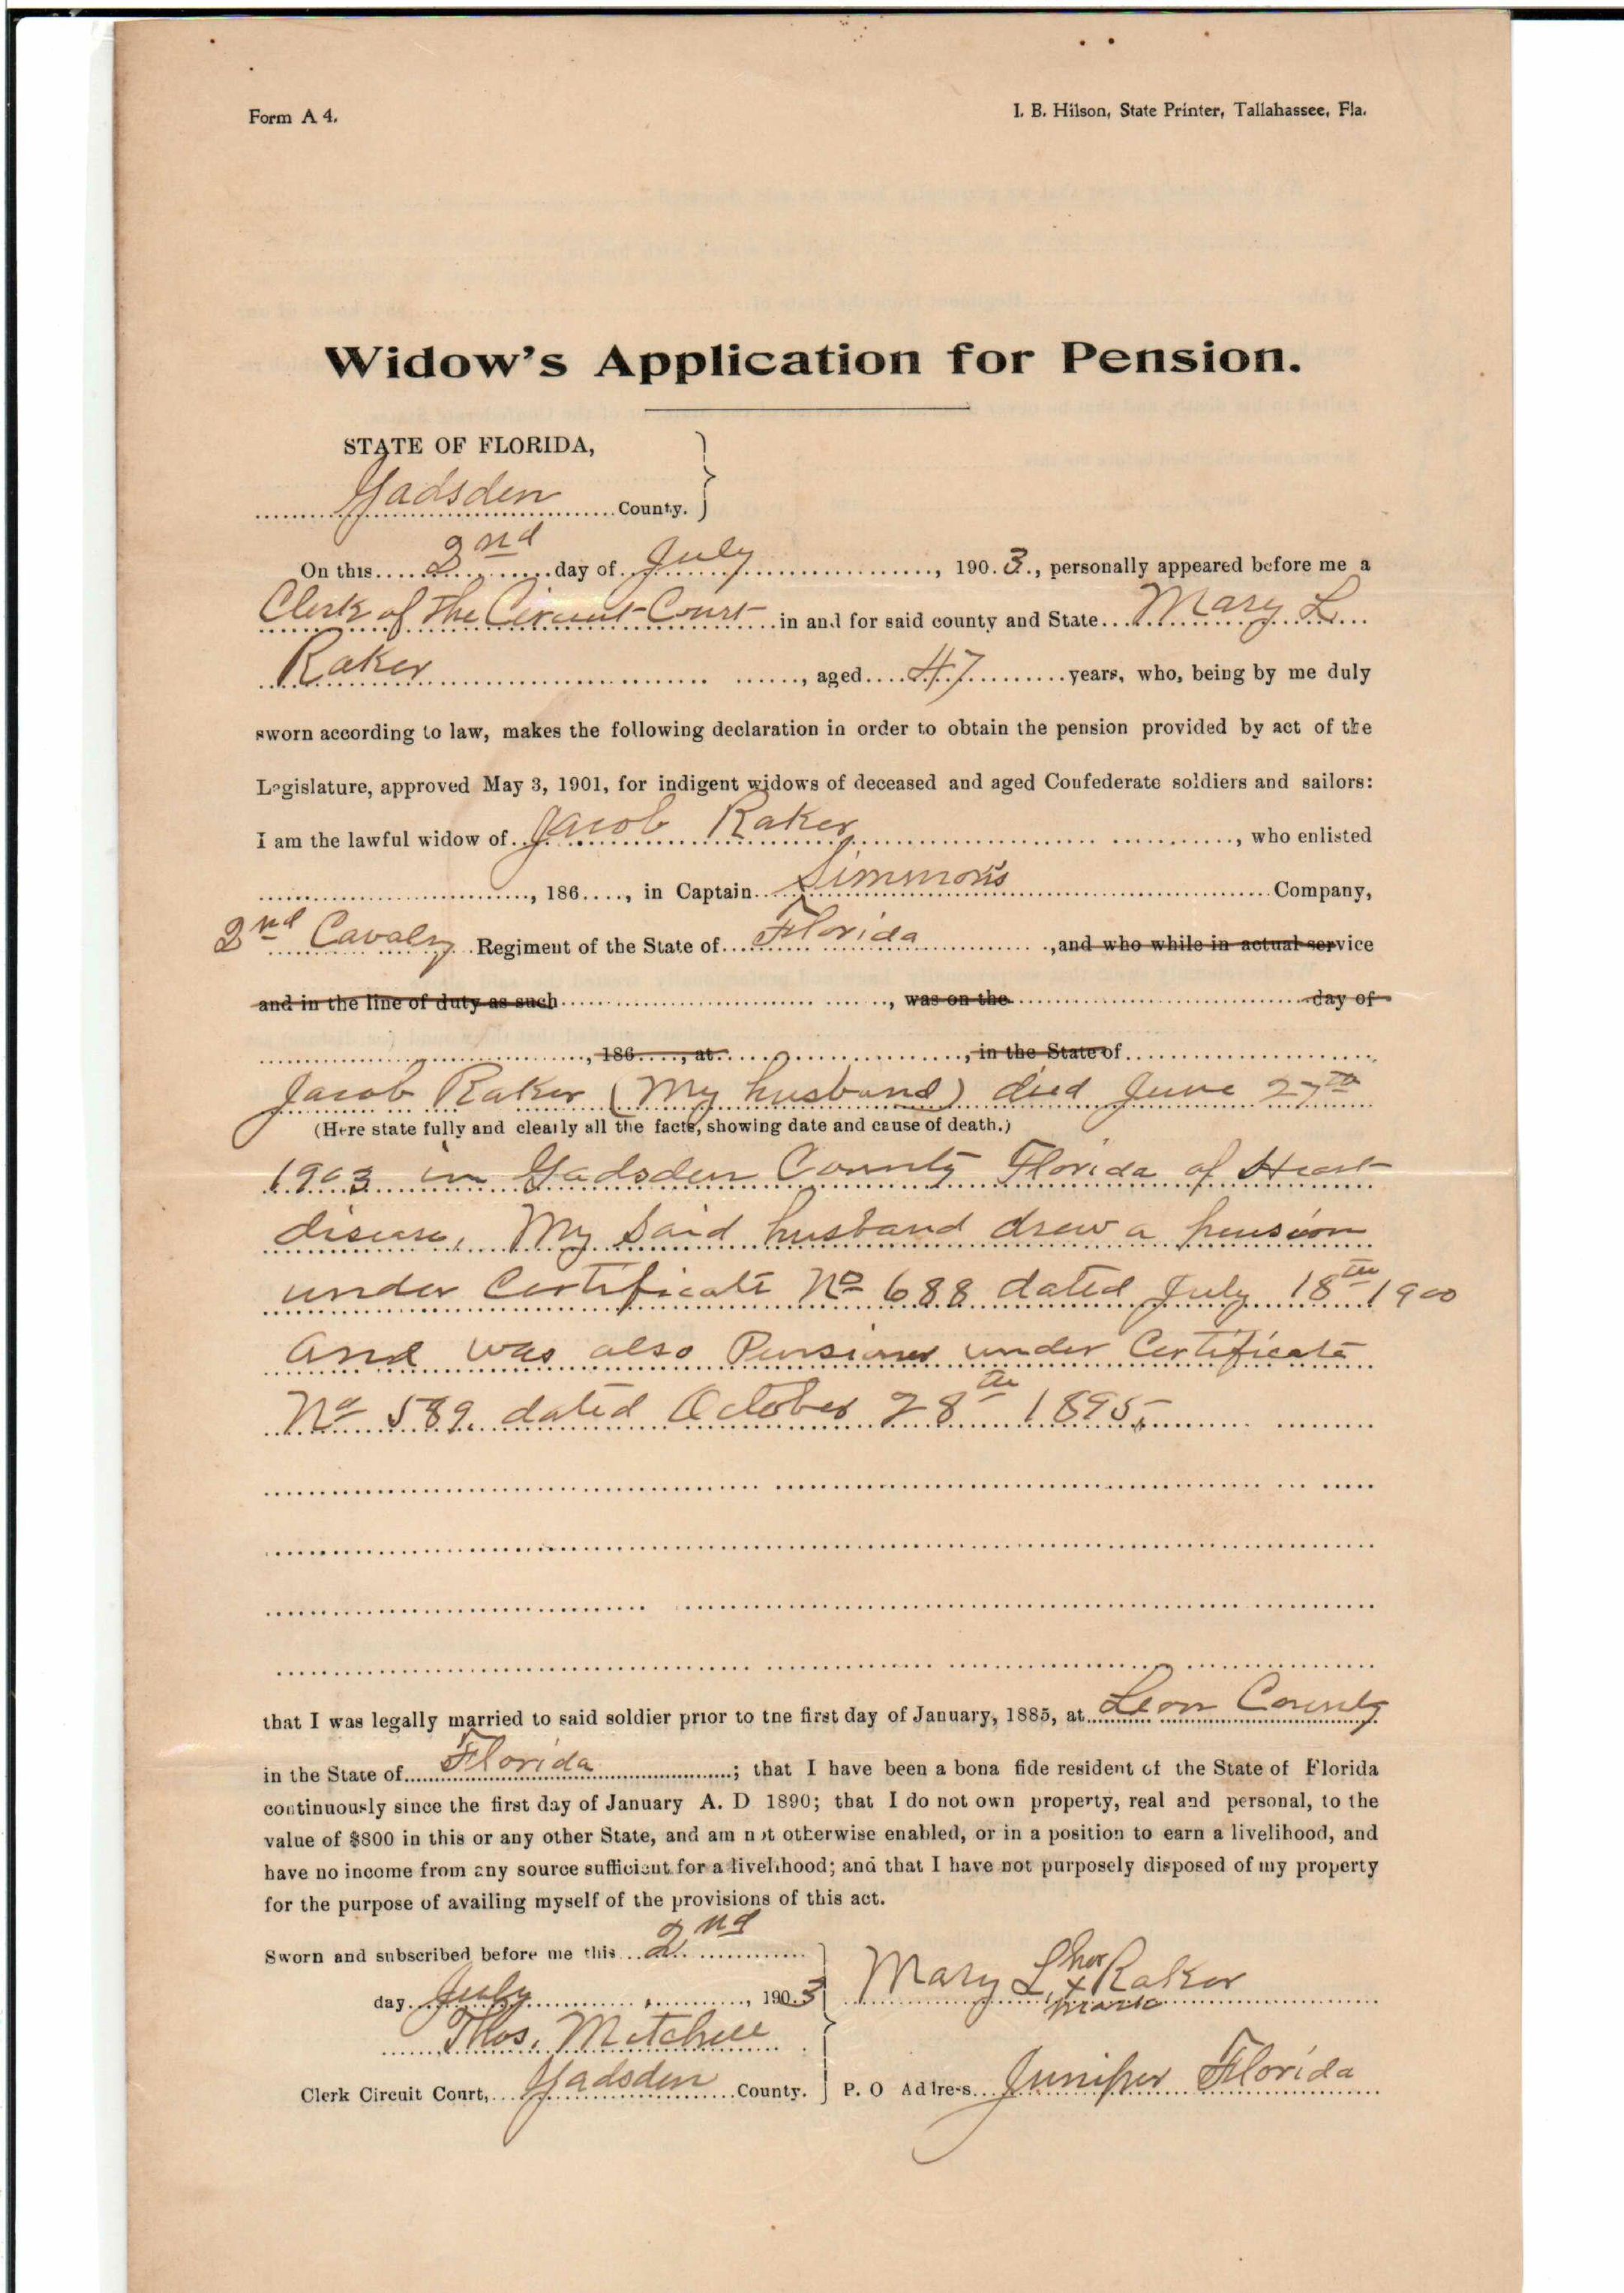 Form A 4.
I. B. Hilson, State Printer, Tallahassee, Fla.
Widow's Application for Pension.
STATE OF FLORIDA,
Gadsden County.
On this 2nd day of July, 1903, personally appeared before me a
Clerk of The Circuit Court in and for said county and State Mary L
Raker, aged 47 years, who, being by me duly
sworn according to law, makes the following declaration in order to obtain the pension provided by act of the
Legislature, approved May 3, 1901, for indigent widows of deceased and aged Confederate soldiers and sailors:
I am the lawful widow of Jacob Raker, who enlisted
, 186...., in Captain Simmons Company,
2nd Cavalry Regiment of the State of Florida, and who while in actual service
and in the line of duty as such, was on the day of
, 186...., at, in the State of
Jacob Raker (My husband) died June 27th
(Here state fully and clearly all the facts, showing date and cause of death.)
1903 in Gadsden County Florida of Heart
disease. My said husband drew a pension
under Certificate No 688 dated July 18th 1900
and was also Pensioned under Certificate
No 589 dated October 28th 1895.
that I was legally married to said soldier prior to the first day of January, 1885, at Leon County
in the State of Florida; that I have been a bona fide resident of the State of Florida
continuously since the first day of January A. D 1890; that I do not own property, real and personal, to the
value of $800 in this or any other State, and am not otherwise enabled, or in a position to earn a livelihood, and
have no income from any source sufficient for a livelihood; and that I have not purposely disposed of my property
for the purpose of availing myself of the provisions of this act.
Sworn and subscribed before me this 2nd
day July, 1903
Thos. Mitchell
Clerk Circuit Court, Gadsden County.
Mary L her x mark Raker
P. O Address Juniper Florida